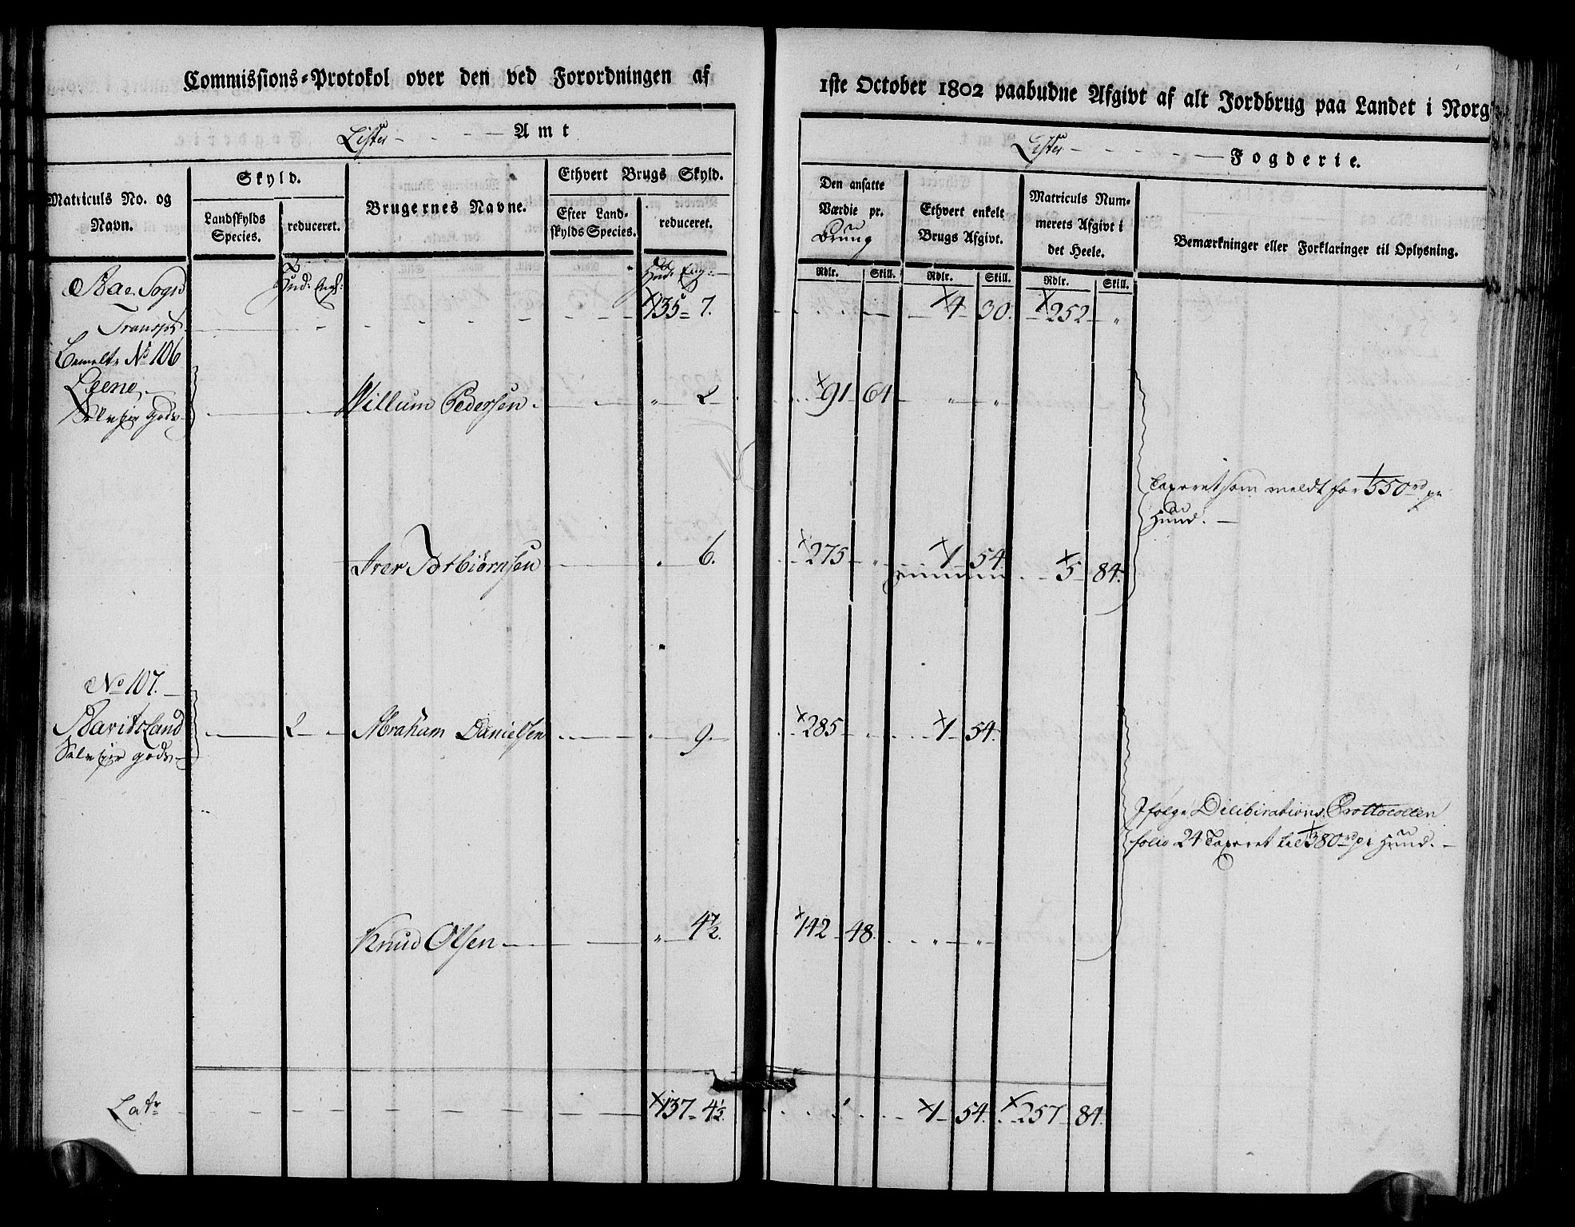 Commissions-Protokol over den ved Forordningen af
1ste October 1802 paabudne Afgivt af alt Jordbrug paa Landet i Norg
Lister Amt
Lister Fogderie.
Matriculs No. og Navn.
Skyld.
Landskylds Species.
reduceret.
Brugernes Navne.
Ethvert Brugs Skyld.
Efter Landskylds Species.
reduceret.
Den ansatte Værdie pr.
Rdlr. Skill.
Ethvert enkelt Brugs Afgivt.
Rdlr. Skill.
Matriculs Nummerets Afgivt i det Heele.
Rdlr. Skill.
Bemærkninger eller Forklaringer til Oplysning.
Sogn
Transport 135 7. 4 30. 252 "
No 106
Leene
Willum Pedersen " 2 91 64 " "
Taxeret som meldt for 550 rd pr
Hud.
Iver Torbiørnsen 6. 275 " 1 54 5 84.
No 107.
2 Abraham Danielsen 9. 285 1 54.
Ifølge Delibirations Prottocollen
folio 24 Taxeret til 380 rd pr Hud.
Knud Olsen " 4½. 142 48. " "
Latr 137 4½. 1 54. 257 84.